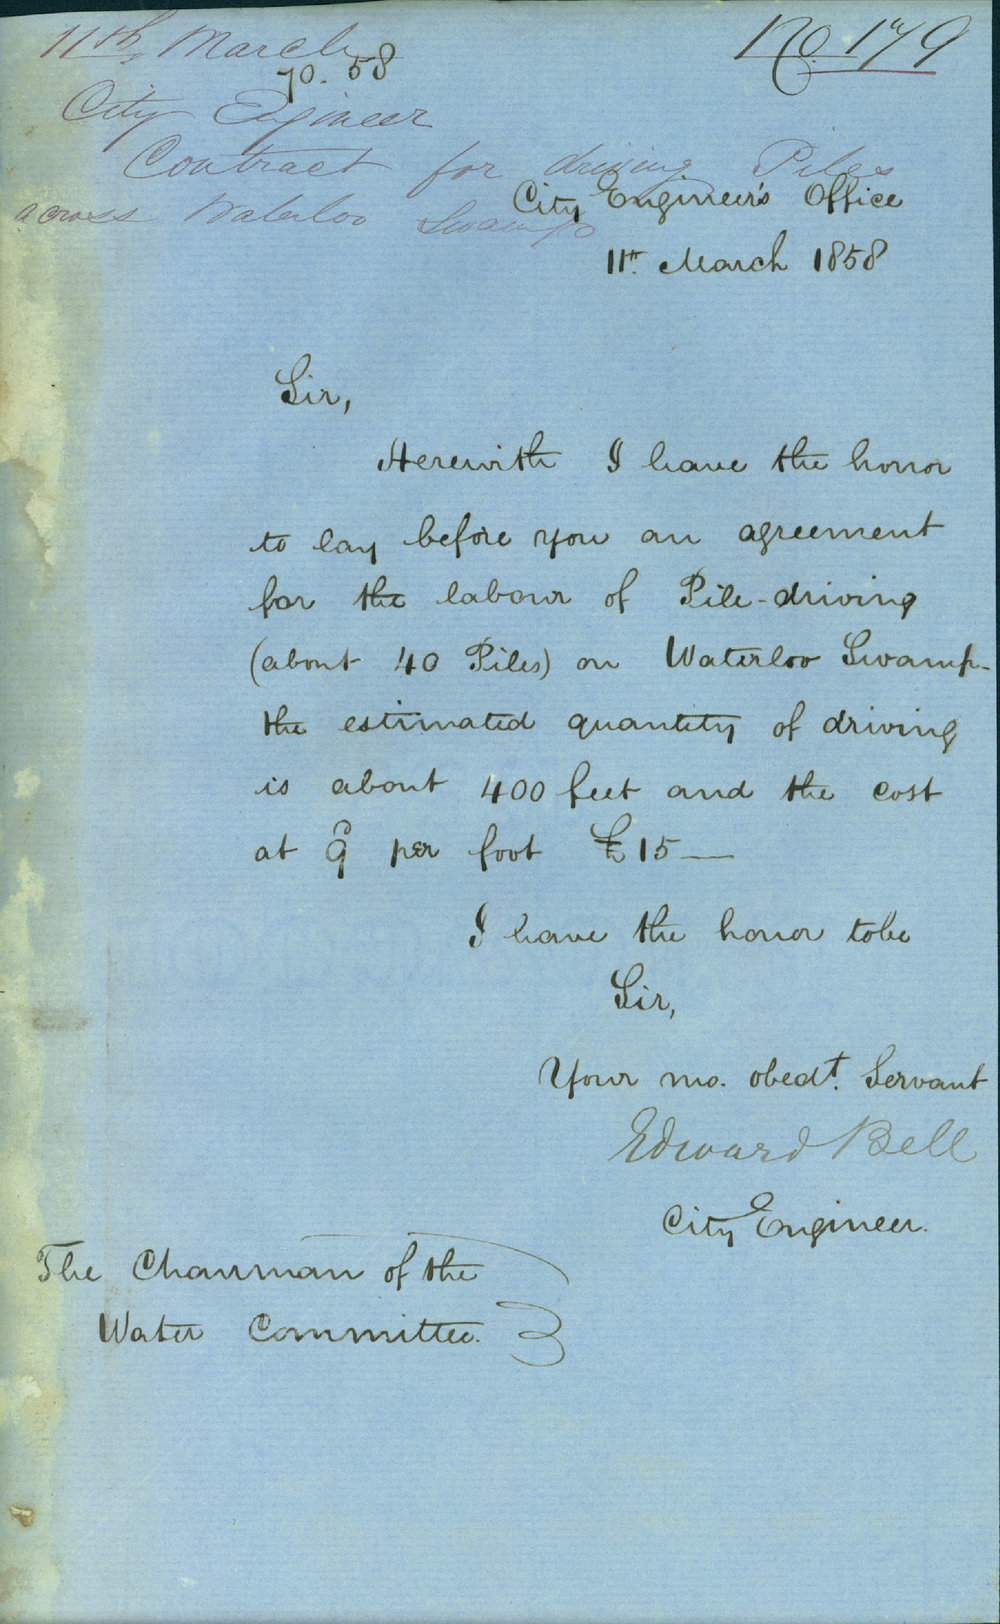 11th March
70. 58
No. 179
City Engineer
Contract for driving Piles
across Waterloo Swamp
City Engineer's Office
11th. March 1858
Sir,
Herewith I have the honor
to lay before you an agreement
for the labour of Pile-driving
(about 40 Piles) on Waterloo Swamp-
the estimated quantity of driving
is about 400 feet and the cost
at 9d per foot £15—
I have the honor to be
Sir,
Your mo. obedt. Servant
Edward Bell
City Engineer.
The Chairman of the
Water Committee.